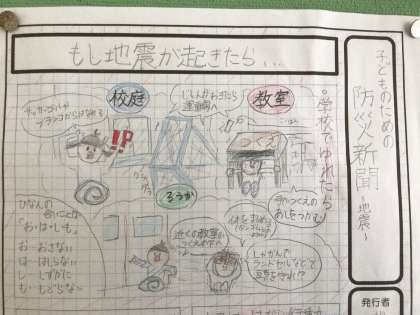 もし地震が起きたら...
子どものための
防災新聞
~地震~
発行者
•学校でゆれたら•
教室
校庭
ろうか
じしんがおきたら
運動場へ
サッカーゴールや
ブランコからはなれる
!?
グラ
グラ
手でつくえの
あしをつかむ
体をまるめる
近くの教室の
つくえの下へ
しゃがんで
ランドセルなどで
頭を守れ!?
ひなんの
合いことば
「お・は・し・も」
お-おさない
は-はしらない
し-しずかに
も-もどらない